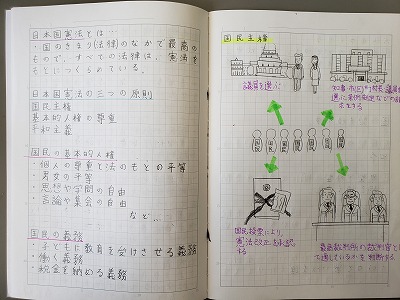 日本国憲法とは…
・国のきまり(法律)のなかで最高の
もので、すべての法律は、憲法を
もとにつくられている。
日本国憲法の三つの原則
国民主権
基本的人権の尊重
平和主義
国民の基本的人権
・個人の尊重と法のもとの平等
・男女の平等
・思想や学問の自由
・言論や集会の自由
など…
国民の義務
・子どもに教育を受けさせる義務
・働く義務
・税金を納める義務
国民主権
議員を選ぶ
国民
国民
国民
国民
国民
国民
国民
国民投票により、
憲法改正を承認
する
最高裁判所の裁判官と
して適しているかを判断する